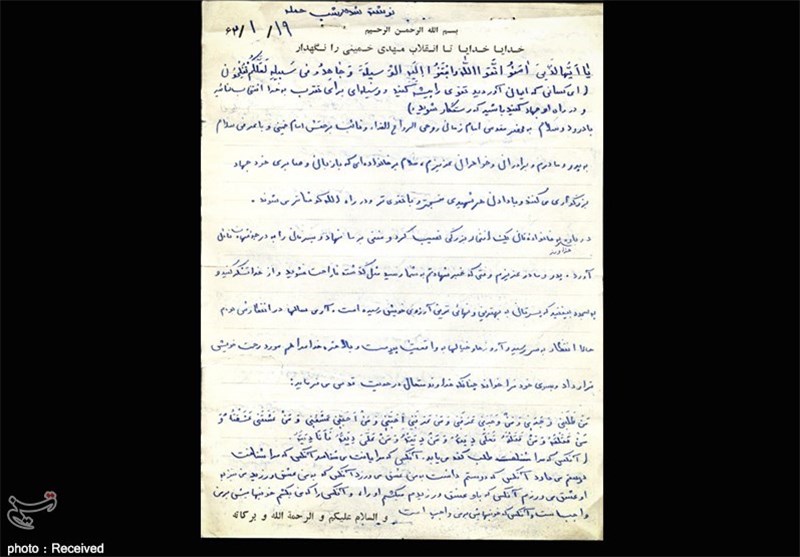 نوشته شده شب حمله
۶۲/۱/۱۹
بسم الله الرحمن الرحیم
خدایا خدایا تا انقلاب مهدی خمینی را نگهدار
یا ایها الذین امنوا اتقوا الله وابتغوا الیه الوسیلة وجاهدو فی سبیله لعلکم تفلحون
( ای کسانی که ایمان آوردید تقوی را پیشه کنید و وسیله‌ای برای تقرب به خدا انتخاب نمائید
و در راه او جهاد کنید باشید که رستگار شوید )
با درود و سلام به محضر مقدس امام زمان روحی الارواح الفداء و نائب برحقش امام خمینی و با عرض سلام
به پدر و مادرم و برادران و خواهران عزیزم، سلام به خانواده‌ای که با زبان و صابری خود جهاد
بزرگ را می کنند و با دادن هر شهیدی مصمم تر و با تقوی تر در راه الله کوشاتر می شوند .
خداوند به خانواده مان یک افتخار بزرگی نصیب کرد و منتی به ما نهاد و پسرمان را به درجه شهادت نائل
آورد. پدر و مادر عزیزم وقتی که خبر شهادتم به شما رسید مثل گذشت ناراحت نشوید و از خدا تشکر کنید و
به سجده بیفتید که پسرتان به بهترین و نهائی ترین آرزوی خویش رسیده است. آری سالها در انتظارش بودم
حالا انتظار به سر رسید و آرزوها و خیالها به واقعیت پیوست و بالاخره خدا مرا هم مورد رحمت خویش
قرار داد و بسوی خود فرا خواند چنانکه خداوند متعال در حدیث قدسی می فرماید:
من طلبنی وجدنی و من وجدنی عرفنی و من عرفنی احبنی و من احبنی عشقنی و من عشقنی عشقته و
من عشقته قتلته و من قتلته فعلی دیته و من علی دیته فأنا دیته
( آنکس که مرا شناخت طلب کند می یابد. آنکس که مرا یافت می شناسد آنکس که مرا شناخت
دوستم می دارد آنکس که دوستم داشت به من عشق می ورزد آنکس که به من عشق ورزید من نیز به
او عشق می ورزم آنکس که به او عشق ورزیدم میکشم او را، و آنکس را که می بکشم خونبهایش بر من
واجب است و آنکس که خونبهایش بر من واجب است
و السلام علیکم و الرحمة الله و برکاته
تسنیم
photo : Received